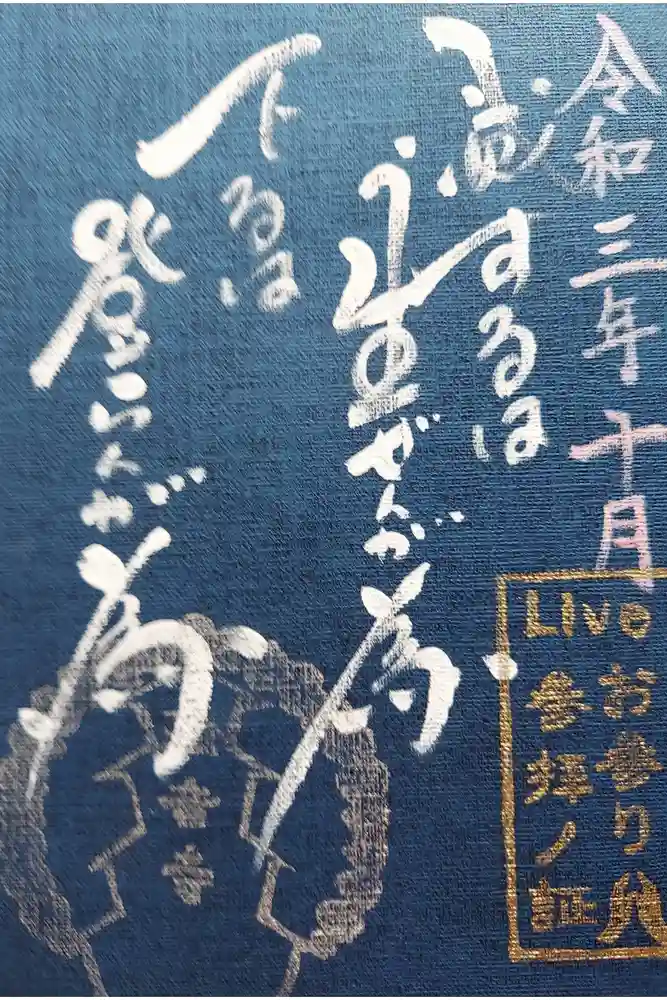 令和三年十月
するは
ぜんが為
下るは
登らんが為
Live
お参り
参拝ノ証